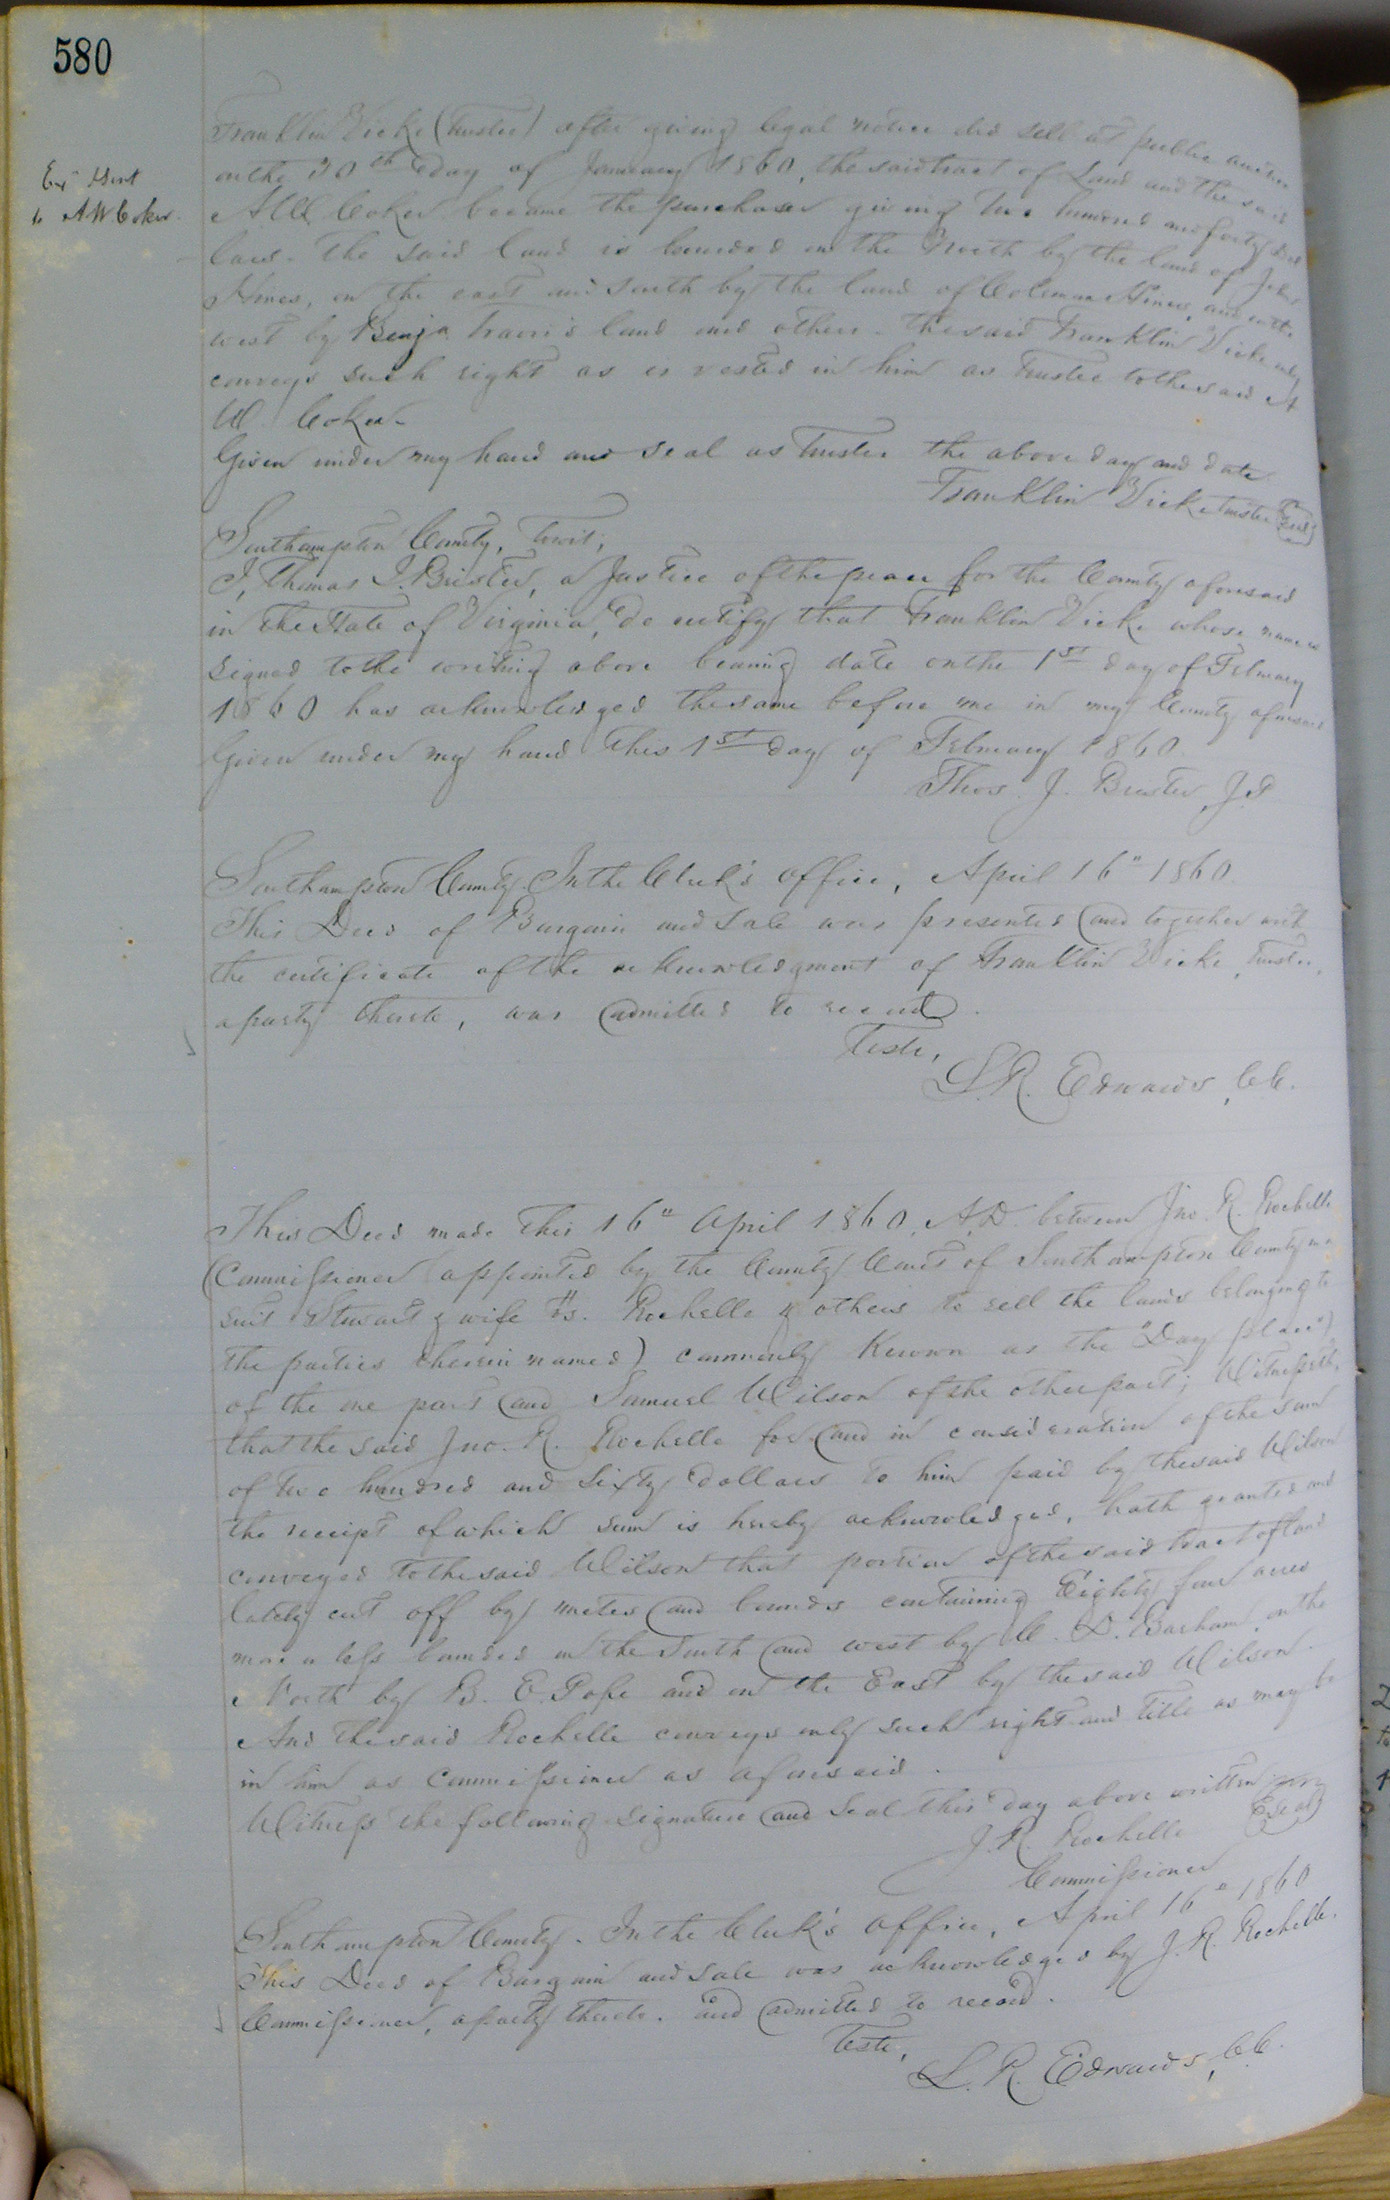 580
Exd & Sent
to A W Coker
Franklin Vick (Trustee) after giving legal notice did sell at public auction
on the 30th day of January 1860, the said tract of Land and the said
A W Coker became the purchaser giving two hundred and forty dol
lars. The said land is bounded on the North by the land of John
Hines, on the east and South by the land of Coleman Hines, and on the
west by Benja Travis's land and others. The said Franklin Vick only
conveys such right as is vested in him as Trustee to the said A
W. Coker.
Given under my hand and seal as Trustee the above day and date
Franklin Vick Trustee Seal
Southampton County, Towit;
I, Thomas J. Brister, a Justice of the peace for the County aforesaid
in the State of Virginia, do certify that Franklin Vick whose name is
signed to the writing above bearing date on the 1st day of February
1860 has acknowledged the same before me in my County aforesaid
Given under my hand this 1st day of February 1860.
Thos. J. Brister, J.P
Southampton County. In the Clerk's office, April 16" 1860.
This Deed of Bargain and Sale was presented and together with
the certificate of the acknowledgment of Franklin Vick, Trustee,
a party thereto, was admitted to record.
Teste,
L. R. Edwards, CC.
This Deed made this 16" April 1860, A.D. between Jno. R. Rochelle
(Commissioner appointed by the County Court of Southampton County in a
suit Stewart & wife vs. Rochelle & others to sell the lands belonging to
the parties therein named) commonly known as the "Day place")
of the one part and Samuel Wilson of the other part; Witnesseth,
that the said Jno. R. Rochelle for and in consideration of the sum
of two hundred and sixty dollars to him paid by the said Wilson
the receipt of which sum is hereby acknowledged, hath granted and
conveyed to the said Wilson that portion of the said tract of land
lately cut off by metes and bounds containing Eighty four acres
more or less bounded on the South and west by C. D. Barham, on the
North by B. E. Pope and on the East by the said Wilson.
And the said Rochelle conveys only such right and title as may be
in him as Commissioner as aforesaid.
Witness the following signature and seal this day above written
J. R. Rochelle Seal
Commissioner
Southampton County. In the Clerk's office, April 16" 1860
This Deed of Bargain and Sale was acknowledged by J. R. Rochelle.
Commissioner, a party thereto. and admitted to record.
Teste,
L. R. Edwards, CC.